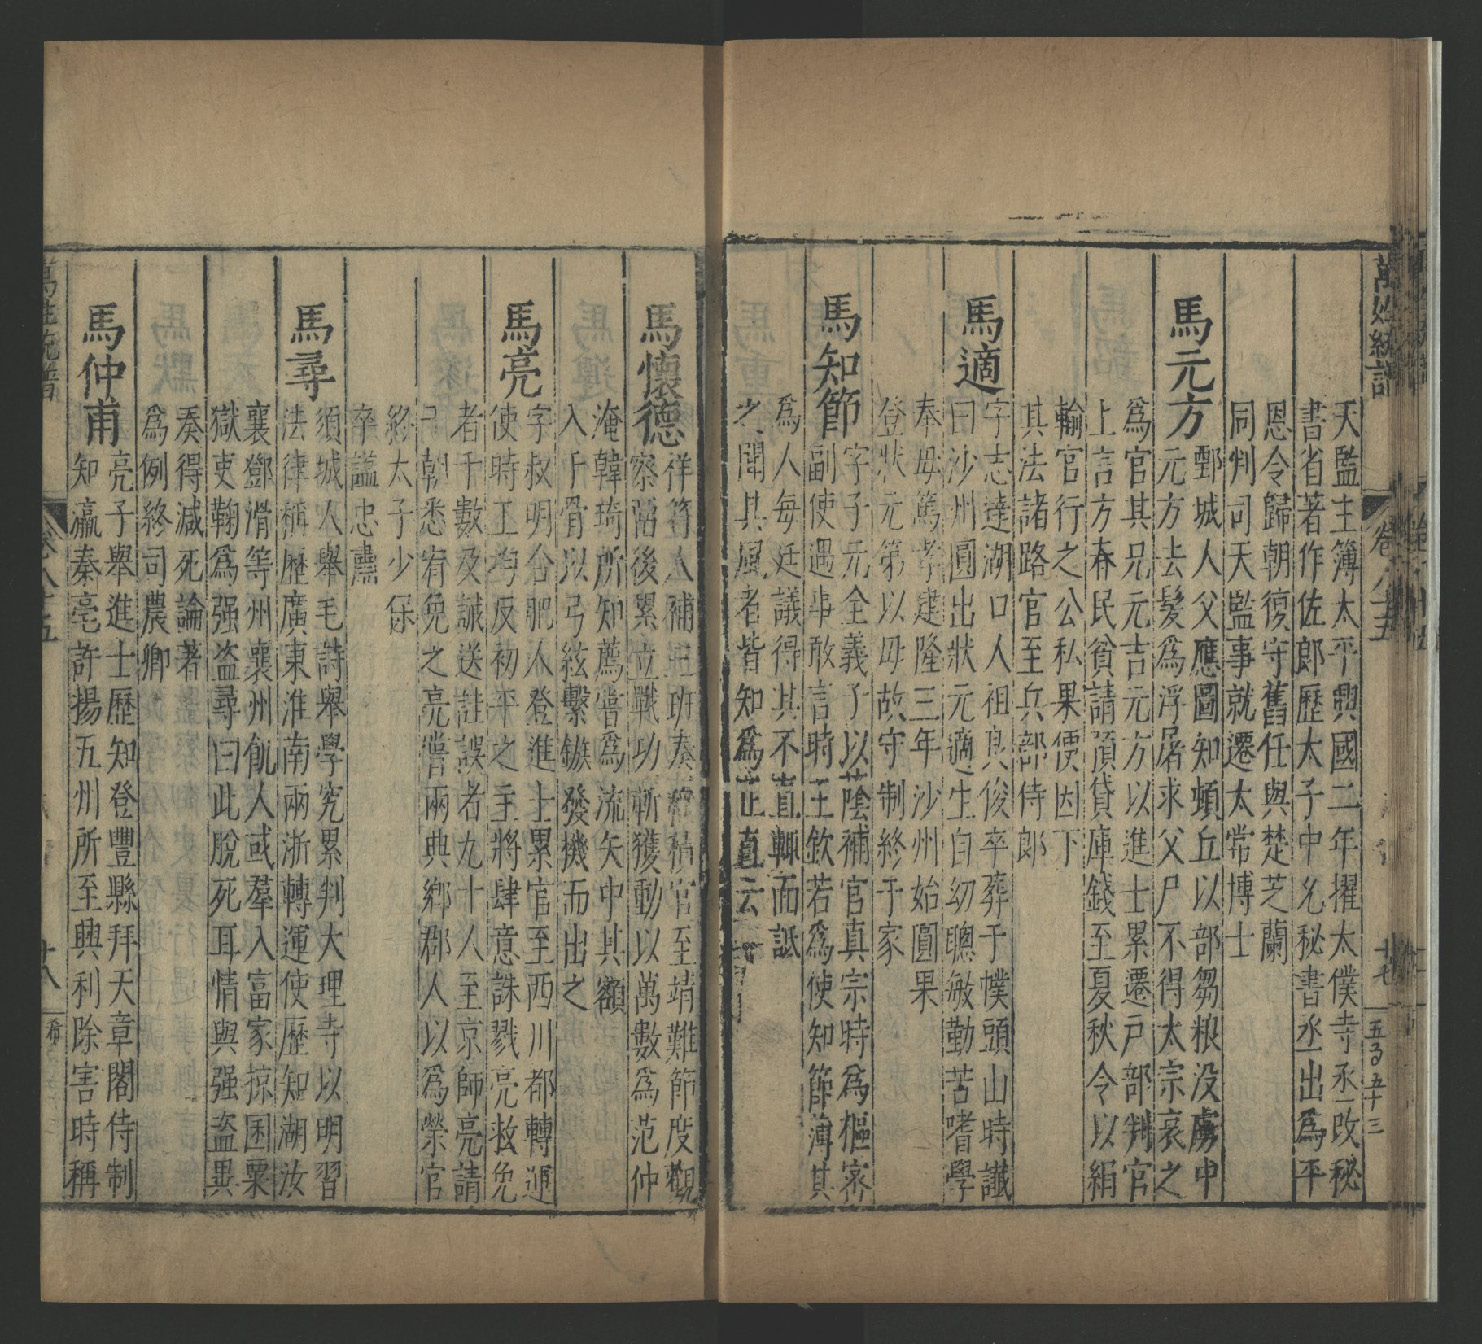 萬姓統譜
卷八十五
十七
五百五十三
天監主簿太平興國二年擢太僕寺丞改秘
書省著作佐郎歷太子中允秘書丞出為平
恩令歸朝復守舊任與楚芝蘭
同判司天監事就遷太常博士
馬元方
鄄城人父應圖知頓丘以部芻粮没虜中
元方去髮為浮屠求父尸不得太宗哀之
為官其兄元吉元方以進士累遷戸部判官
上言方春民貧請預貸庫錢至夏秋令以絹
輸官行之公私果便因下
其法諸路官至兵部侍郎
馬適
字志達湖口人祖良俊卒葬于幞頭山時讖
曰沙州圓出狀元適生自幼聰敏勤苦嗜學
奉母篤孝建隆三年沙州始圓果
登狀元第以母故守制終于家
馬知節
字子元全義子以蔭補官真宗時為樞宻
副使遇事敢言時王欽若為使知節薄其
為人每廷議得其不直輒面詆
之聞其風者皆知為正直云
馬懷德
祥符人補班奏官至靖難節度觀
察留後累立戰功斬獲動以萬數為范仲
淹韓琦所知薦嘗為流矢中其額
入于骨以弓絃繫鏃發機而出之
馬亮
字叔明合肥人登進士累官至西川都轉運
使時王均反初平之主將肆意誅戮亮救免
者千數及誠送詿誤者九十人至京師亮請
于朝悉宥免之亮嘗兩典鄉郡人以為榮官
終太子少保
卒謚忠肅
馬尋
須城人舉毛詩舉學究累判大理寺以明習
法律稱歷廣東淮南兩浙轉運使歷知湖汝
襄鄧滑等州襄州飢人或羣入富家掠囷粟
獄吏鞫為强盗尋曰此脫死耳情與强盗異
奏得减死論著
為例終司農卿
馬仲甫
亮子舉進士歷知登豐縣拜天章閣侍制
知瀛秦亳許揚五州所至興利除害時稱
萬姓統譜
卷八十五
十八